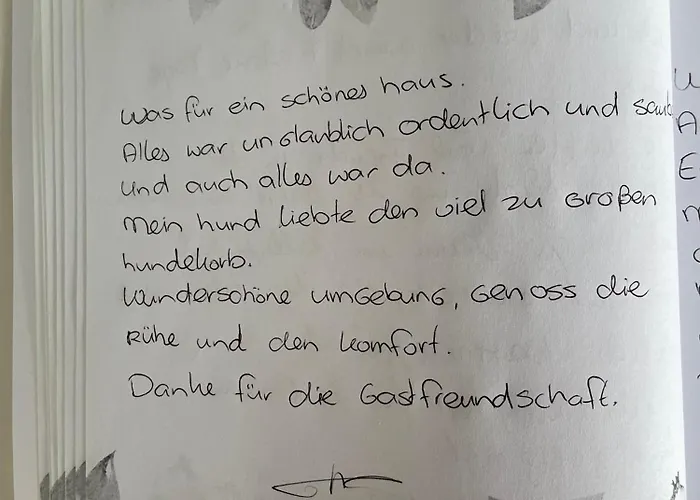 Was für ein schönes haus.
Alles war unglaublich ordentlich und
und auch alles war da.
Mein hund liebte den viel zu Großen
hundekorb.
Wunderschöne umgebung, genoss die
Rühe und den komfort.
Danke für die Gastfreundschaft.
U
A
E